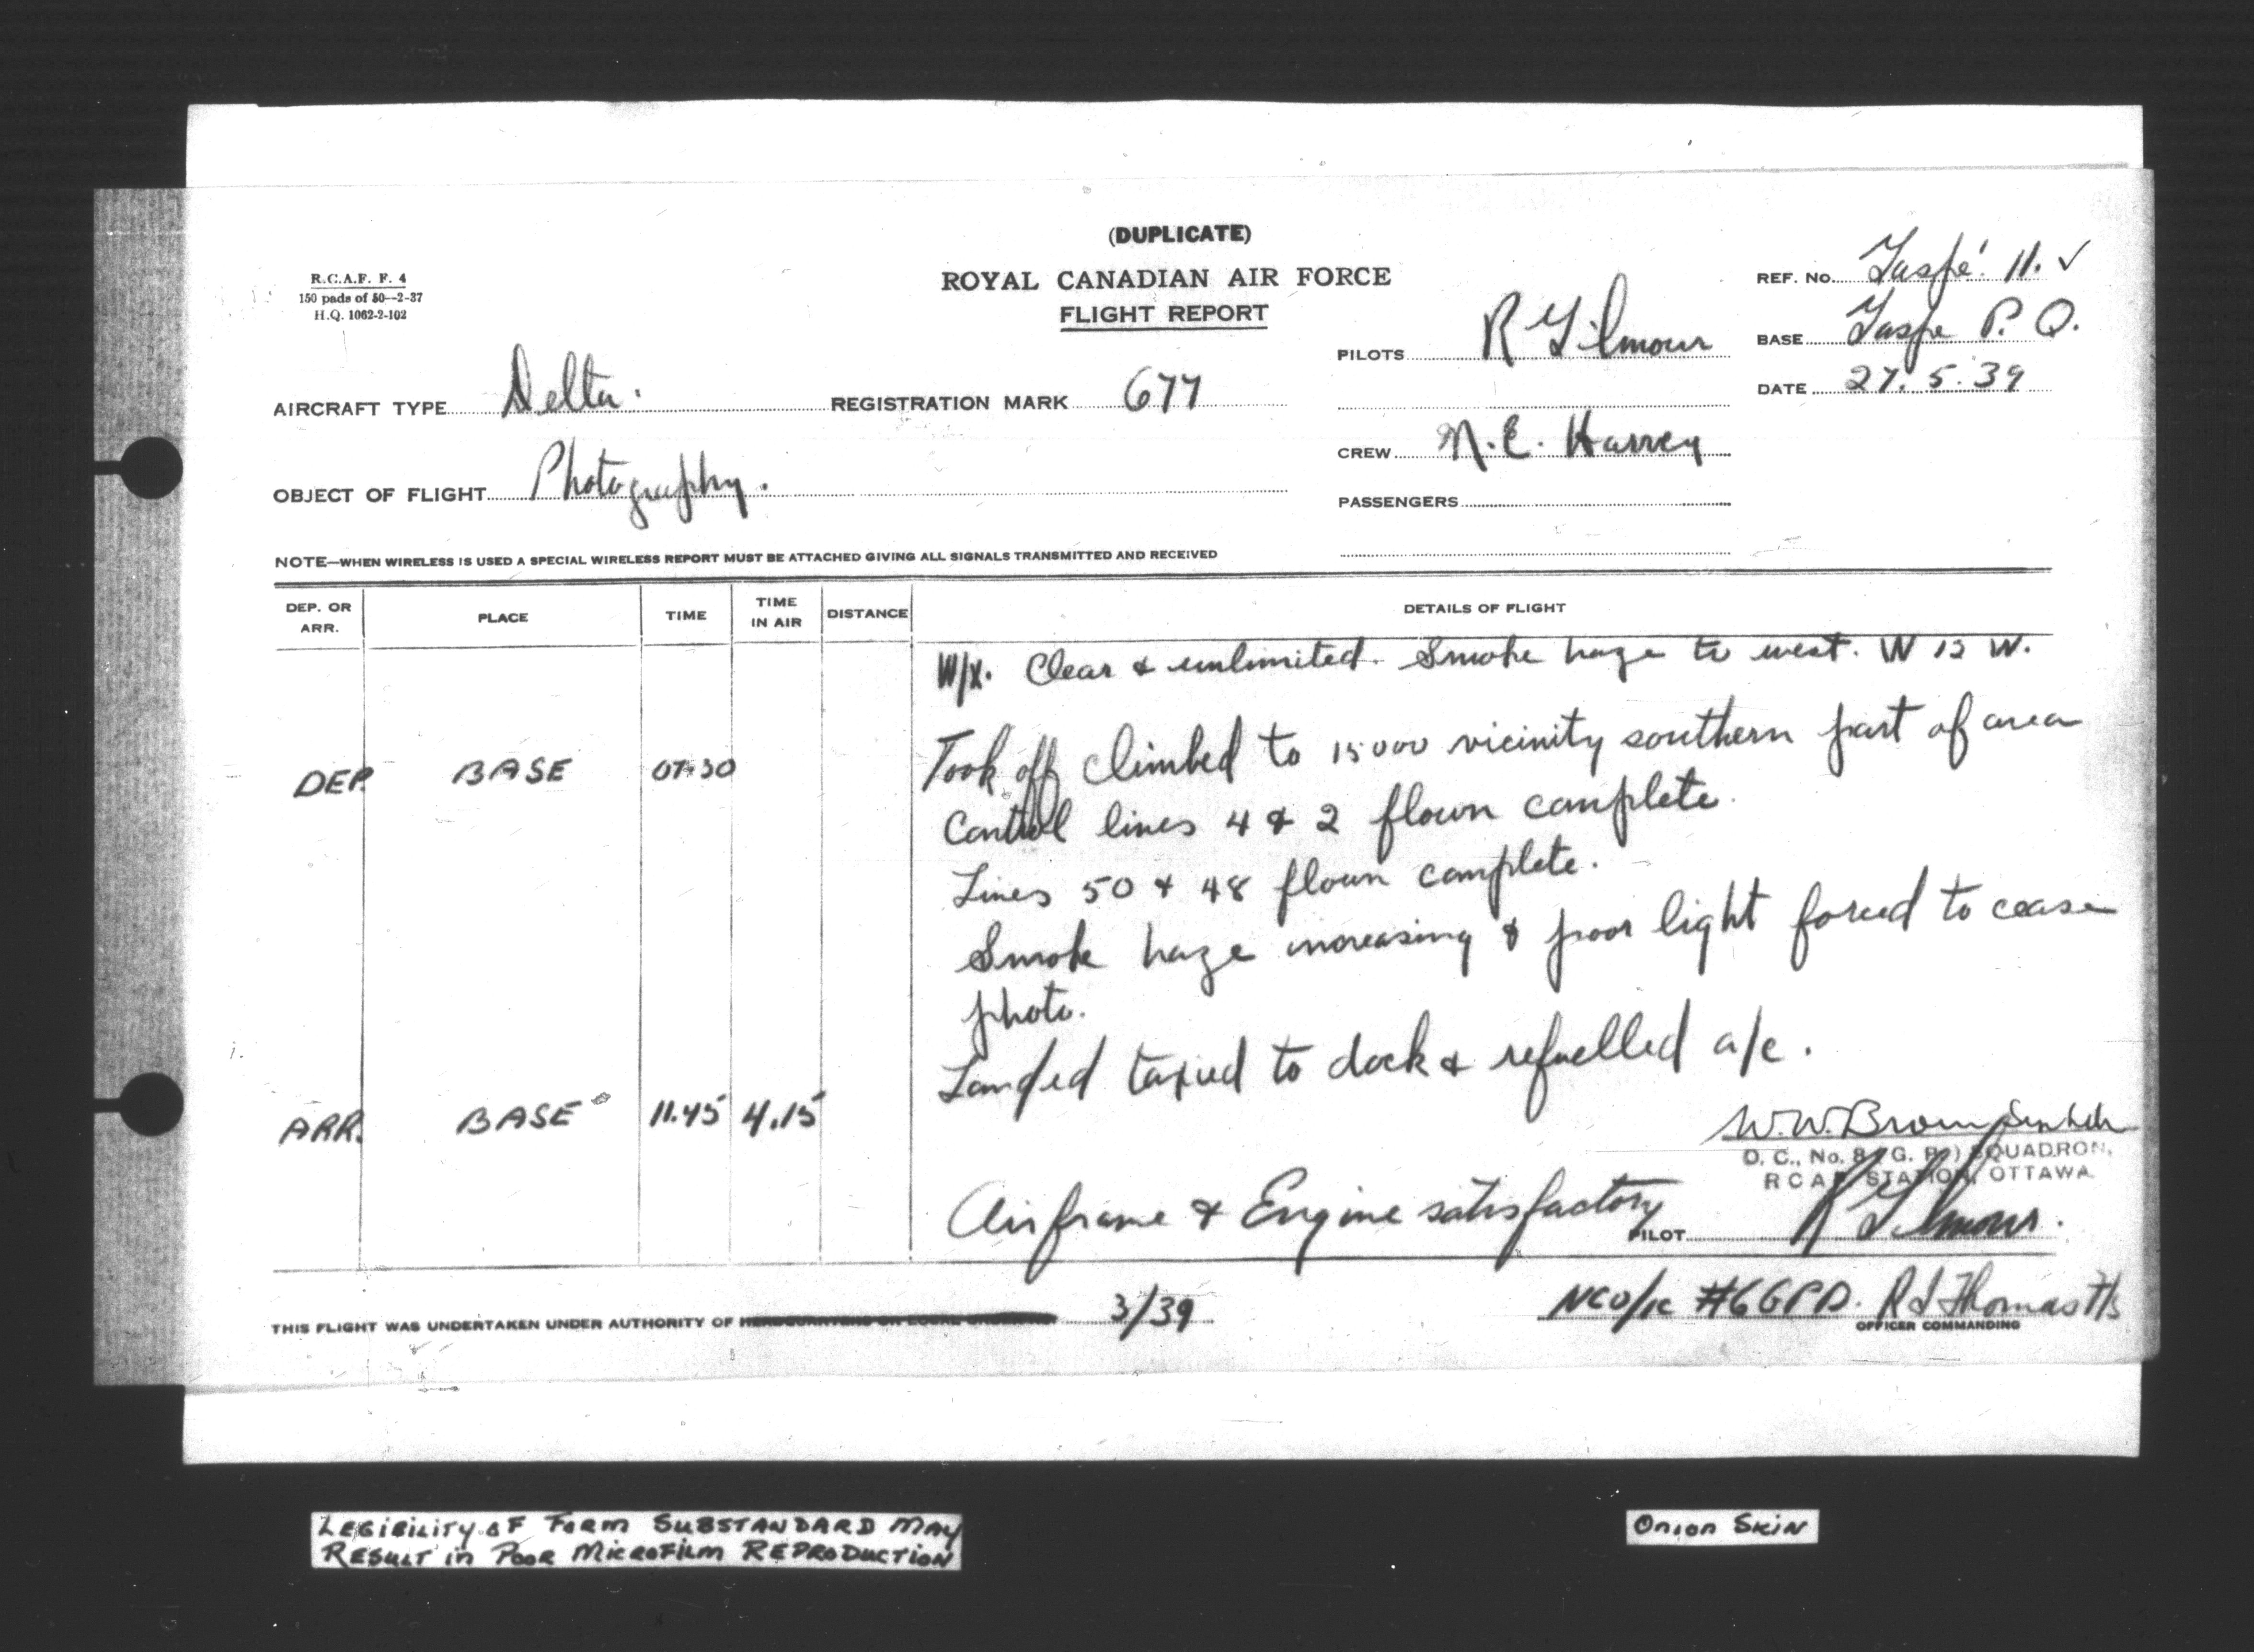 (DUPLICATE)
R.C.A.F. F. 4
150 pads of 50--2-37
H.Q. 1062-2-102
ROYAL CANADIAN AIR FORCE
FLIGHT REPORT
REF. No. Gaspé 11. ✓
BASE Gaspe P. Q.
DATE 27.5.39
PILOTS R Gilmour
AIRCRAFT TYPE Delta. REGISTRATION MARK 677
CREW N.E. Harvey
OBJECT OF FLIGHT Photography.
PASSENGERS
NOTE—WHEN WIRELESS IS USED A SPECIAL WIRELESS REPORT MUST BE ATTACHED GIVING ALL SIGNALS TRANSMITTED AND RECEIVED
DEP. OR ARR. PLACE TIME TIME IN AIR DISTANCE DETAILS OF FLIGHT
W/X. Clear & unlimited. Smoke haze to west. W 12 W.
DEP. BASE 07.30 Took off climbed to 15000 vicinity southern part of area
Control lines 4 & 2 flown complete.
Lines 50 & 48 flown complete.
Smoke haze increasing & poor light forced to cease
photo.
Landed taxied to dock & refuelled a/c.
ARR. BASE 11.45 4.15
W.W. Brown
O. C., No. 8 (G. P.) SQUADRON,
R C A F STATION, OTTAWA
Airframe & Engine satisfactory
PILOT R Gilmour.
THIS FLIGHT WAS UNDERTAKEN UNDER AUTHORITY OF HEADQUARTERS OR LOCAL ORDER No 3/39
NCO/ic #6 GPD. R I Thomas F/S
OFFICER COMMANDING
LEGIBILITY OF FORM SUBSTANDARD MAY
RESULT in POOR MICROFILM REPRODUCTION
Onion Skin